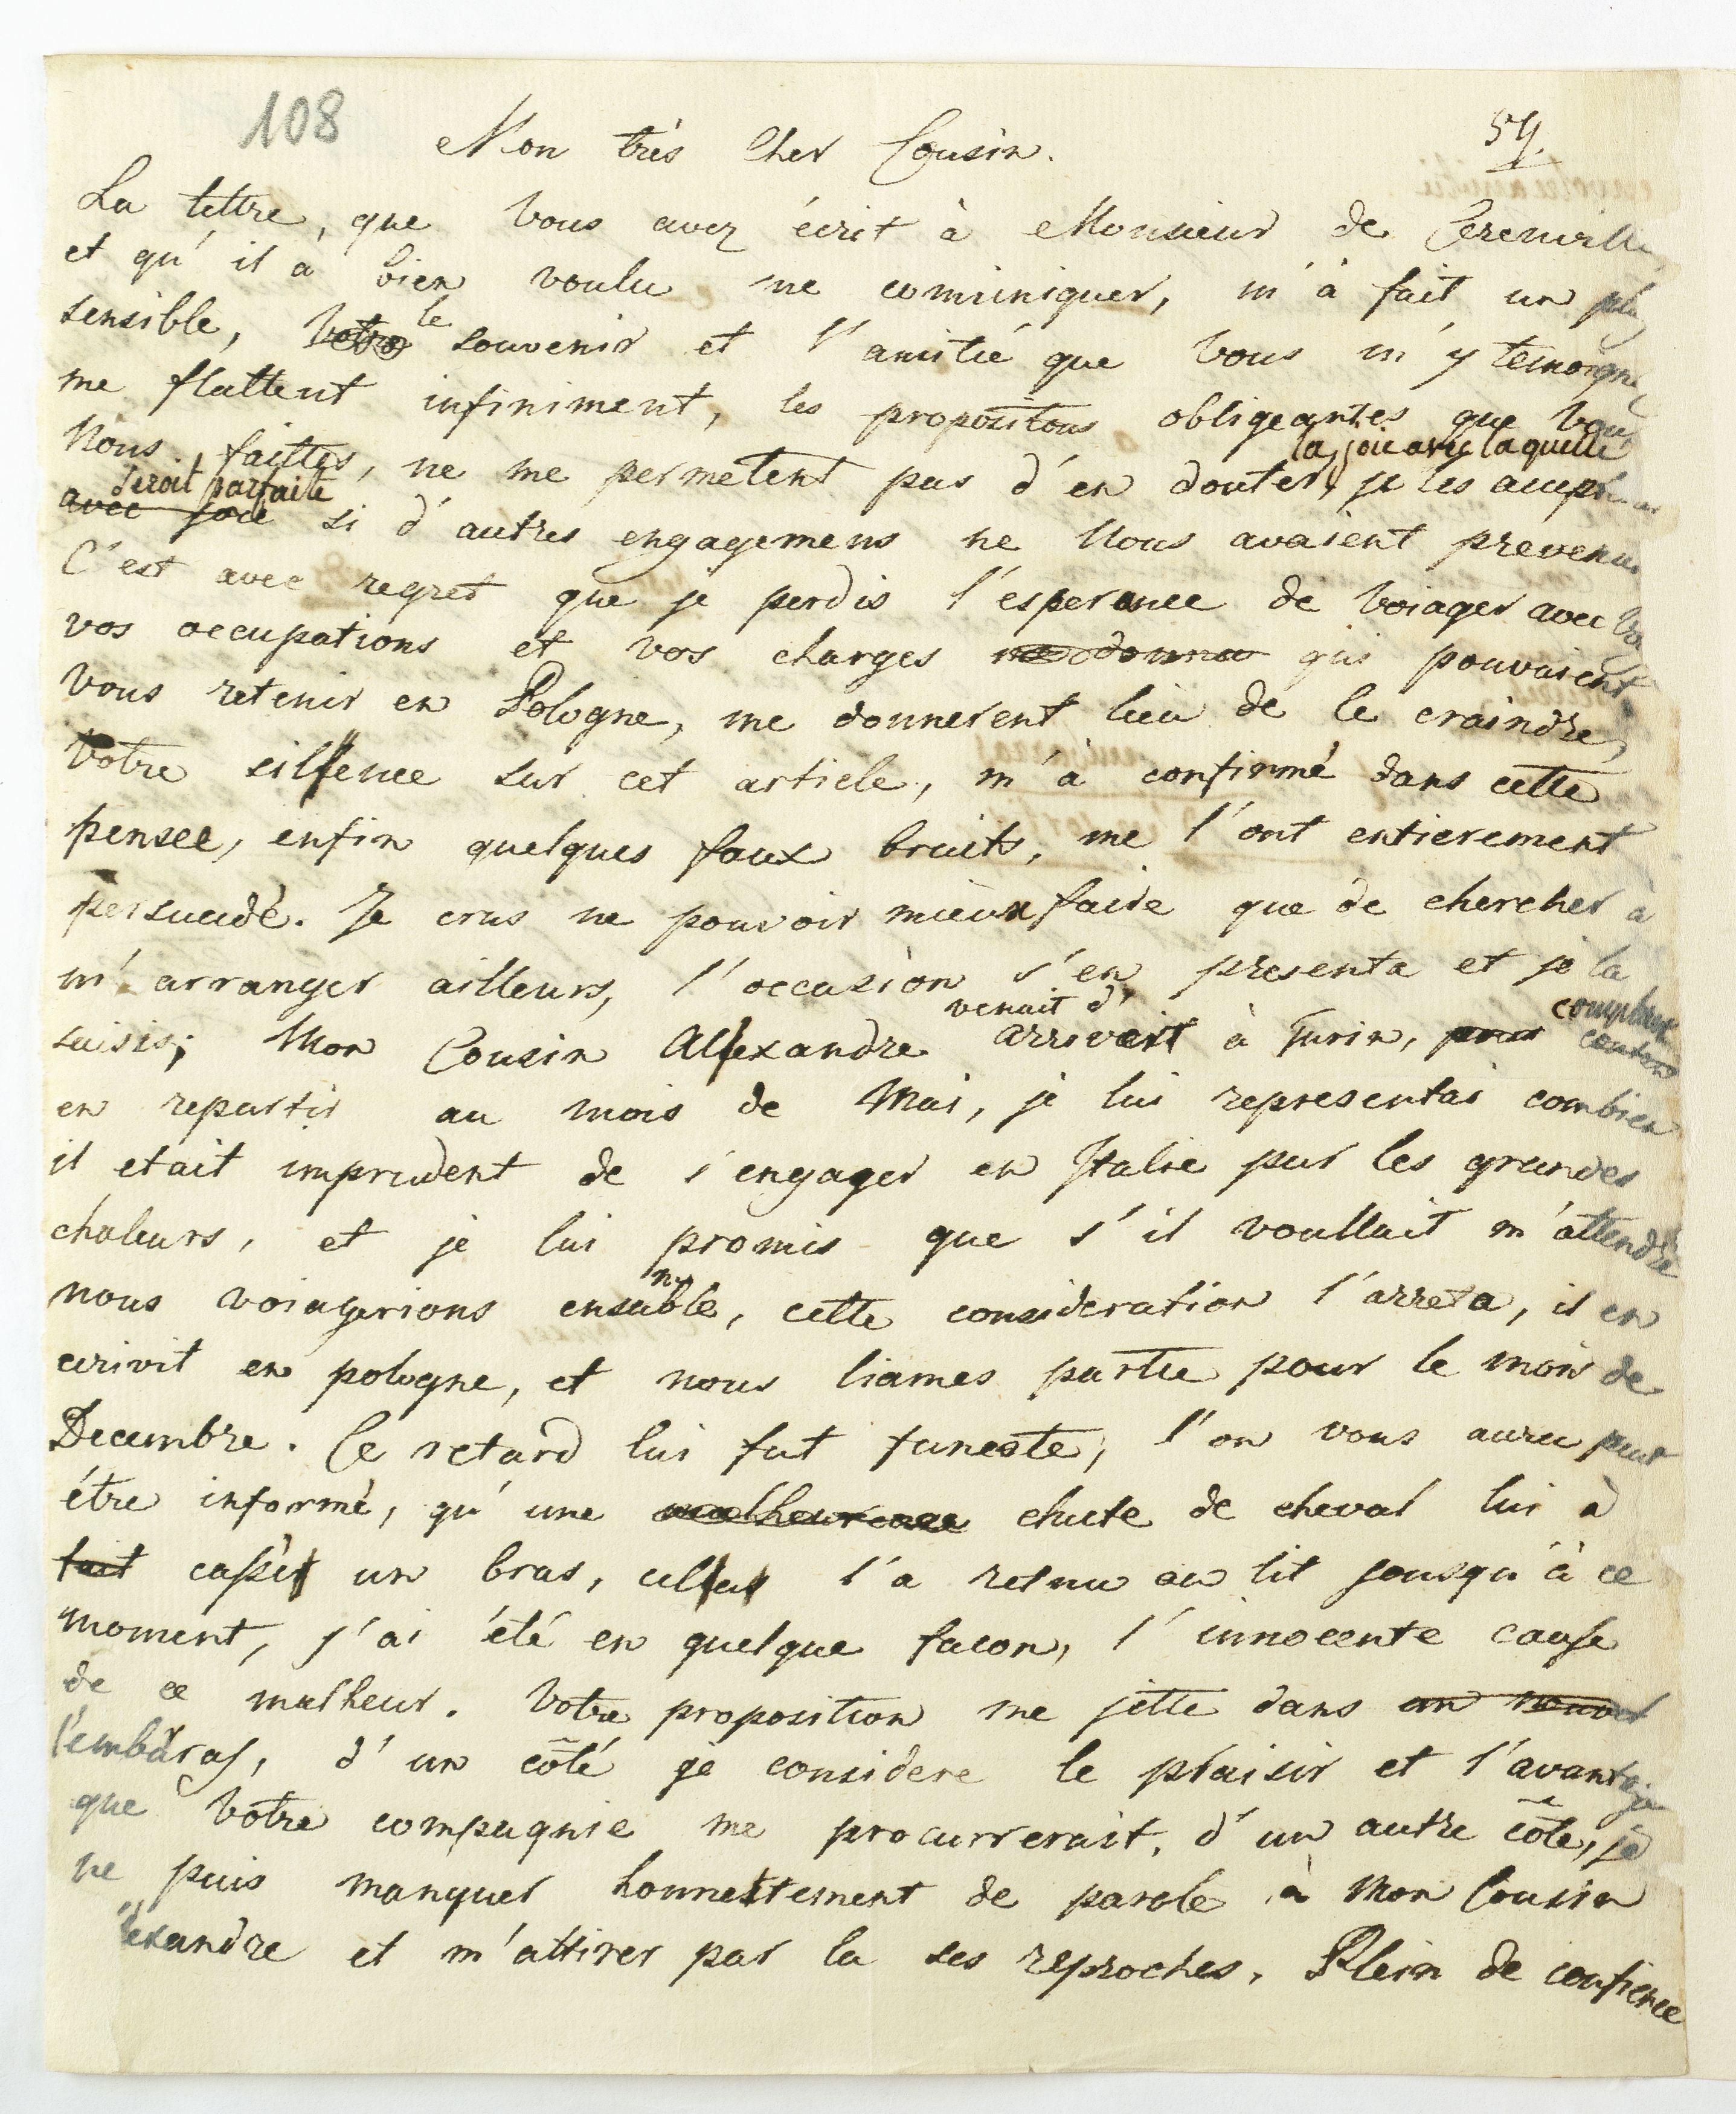 108
59.
Mon très Cher Cousin.
La lettre, que Vous avez écrit à Monsieur de Cerenville
et qu'il à bien voulu me cominiquer, m'à fait un
sensible, Votre le souvenir et l'amitié que Vous m'y temoigne
me flattent infiniment, les propositions obligeantes que Vous
Nous faittes, ne me permetent pas d'en douter, la joie avec laquelle je les
avec joie seroit parfaite si d'autres engagemens ne Nous avaient prevenus
C'est avec regret que je perdis l'esperance de voiager avec
vos occupations et vos charges qui pouvaient
Vous retenir en Pologne, me donnerent lieu de le craindre,
Votre silence sur cet article, m'à confirmé dans cette
pensee, enfin quelques faux bruits, me l'ont entierement
persuadé. Je crus ne pouvoir mieux faire que de chercher à
m'arranger ailleurs, l'occasion s'en presenta et je la
saisis; Mon Cousin Alexandre venait d'arriver à Turin, comptant
en repartir au mois de Mai, je lui representai combien
il etait imprudent de s'engager en Italie par les grandes
chaleurs, et je lui promis que s'il voullait m'attendre
nous voiagerions ensamble, cette consideration l'arreta, il en
ecrivit en pologne, et nous liames partie pour le mois de
Decembre. Ce retard lui fut funeste, l'on vous aura peut
être informé, qu'une malheureuse chute de cheval lui à
fait cassé un bras, cela l'a retnu au lit jousqu'à ce
moment, j'ai été en quelque facon, l'innocente cause
de ce malheur. Votre proposition me jette dans un nouvel
l'embaras, d'un côté je considere le plaisir et l'avantage
que Votre compagnie me procurrerait, d'un autre côte, je
ne puis manquer honnettement de parole à Mon Cousin
lexandre et m'attirer par la ses reproches. Plein de confience